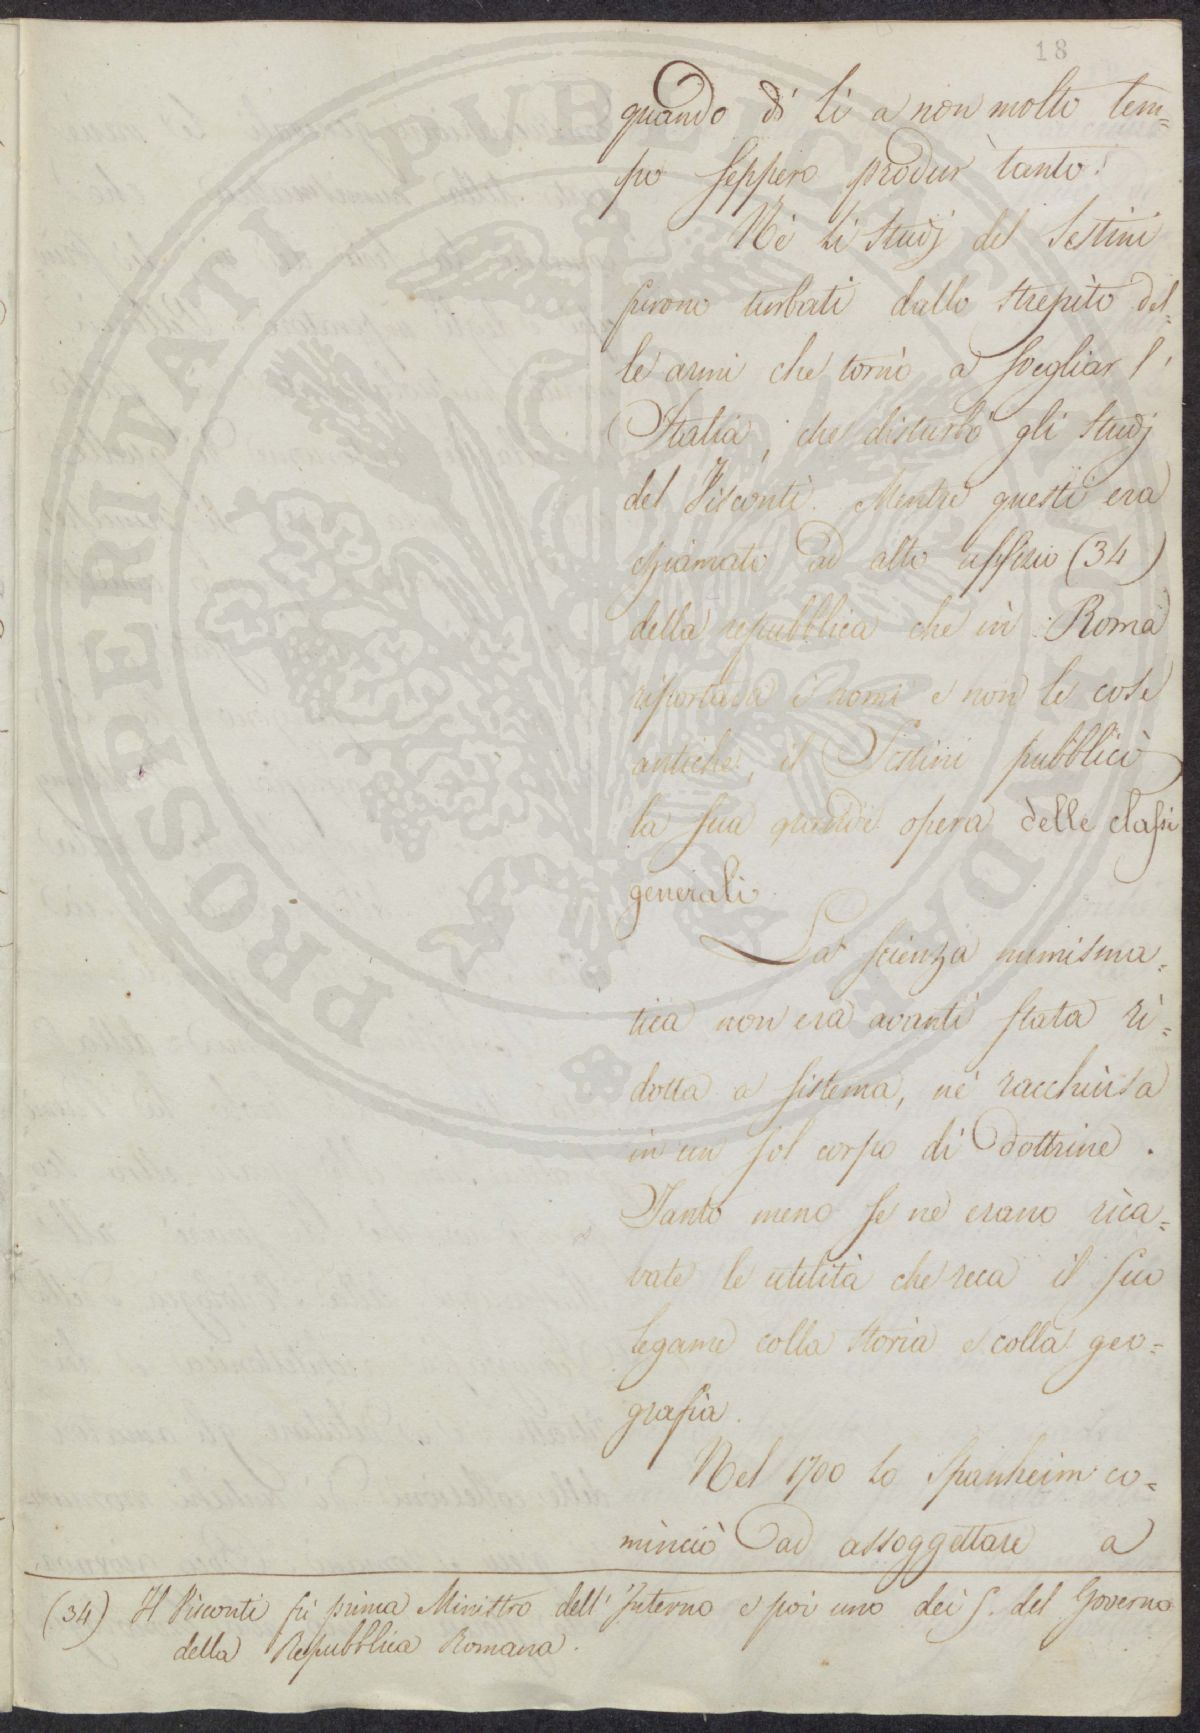 18
quando di lì a non molto tem=
po seppero produr tanto!
Nè li studj del Sestini
furono turbati dallo strepito del=
le armi che tornò a svegliar l'
Italia, che disturbò gli studj
del Visconti. Mentre questi era
chiamato ad alto uffizio (34)
della repubblica che in Roma
riportava i nomi e non le cose
antiche, il Sestini pubblicò
la sua grande opera delle classi
generali.
La scienza numisma=
tica non era avanti stata ri=
dotta a sistema, nè racchiusa
in un sol corpo di dottrine.
Tanto meno se ne erano rica=
vate le utilità che reca il suo
legame colla storia e colla geo=
grafia.
Nel 1700 lo Spanheim co=
minciò ad assoggettare a
(34) Il Visconti fù prima Ministro dell'Interno e poi uno dei 5. del Governo
della Repubblica Romana.
PROSPERITATI PUBLICAE AUGENDAE